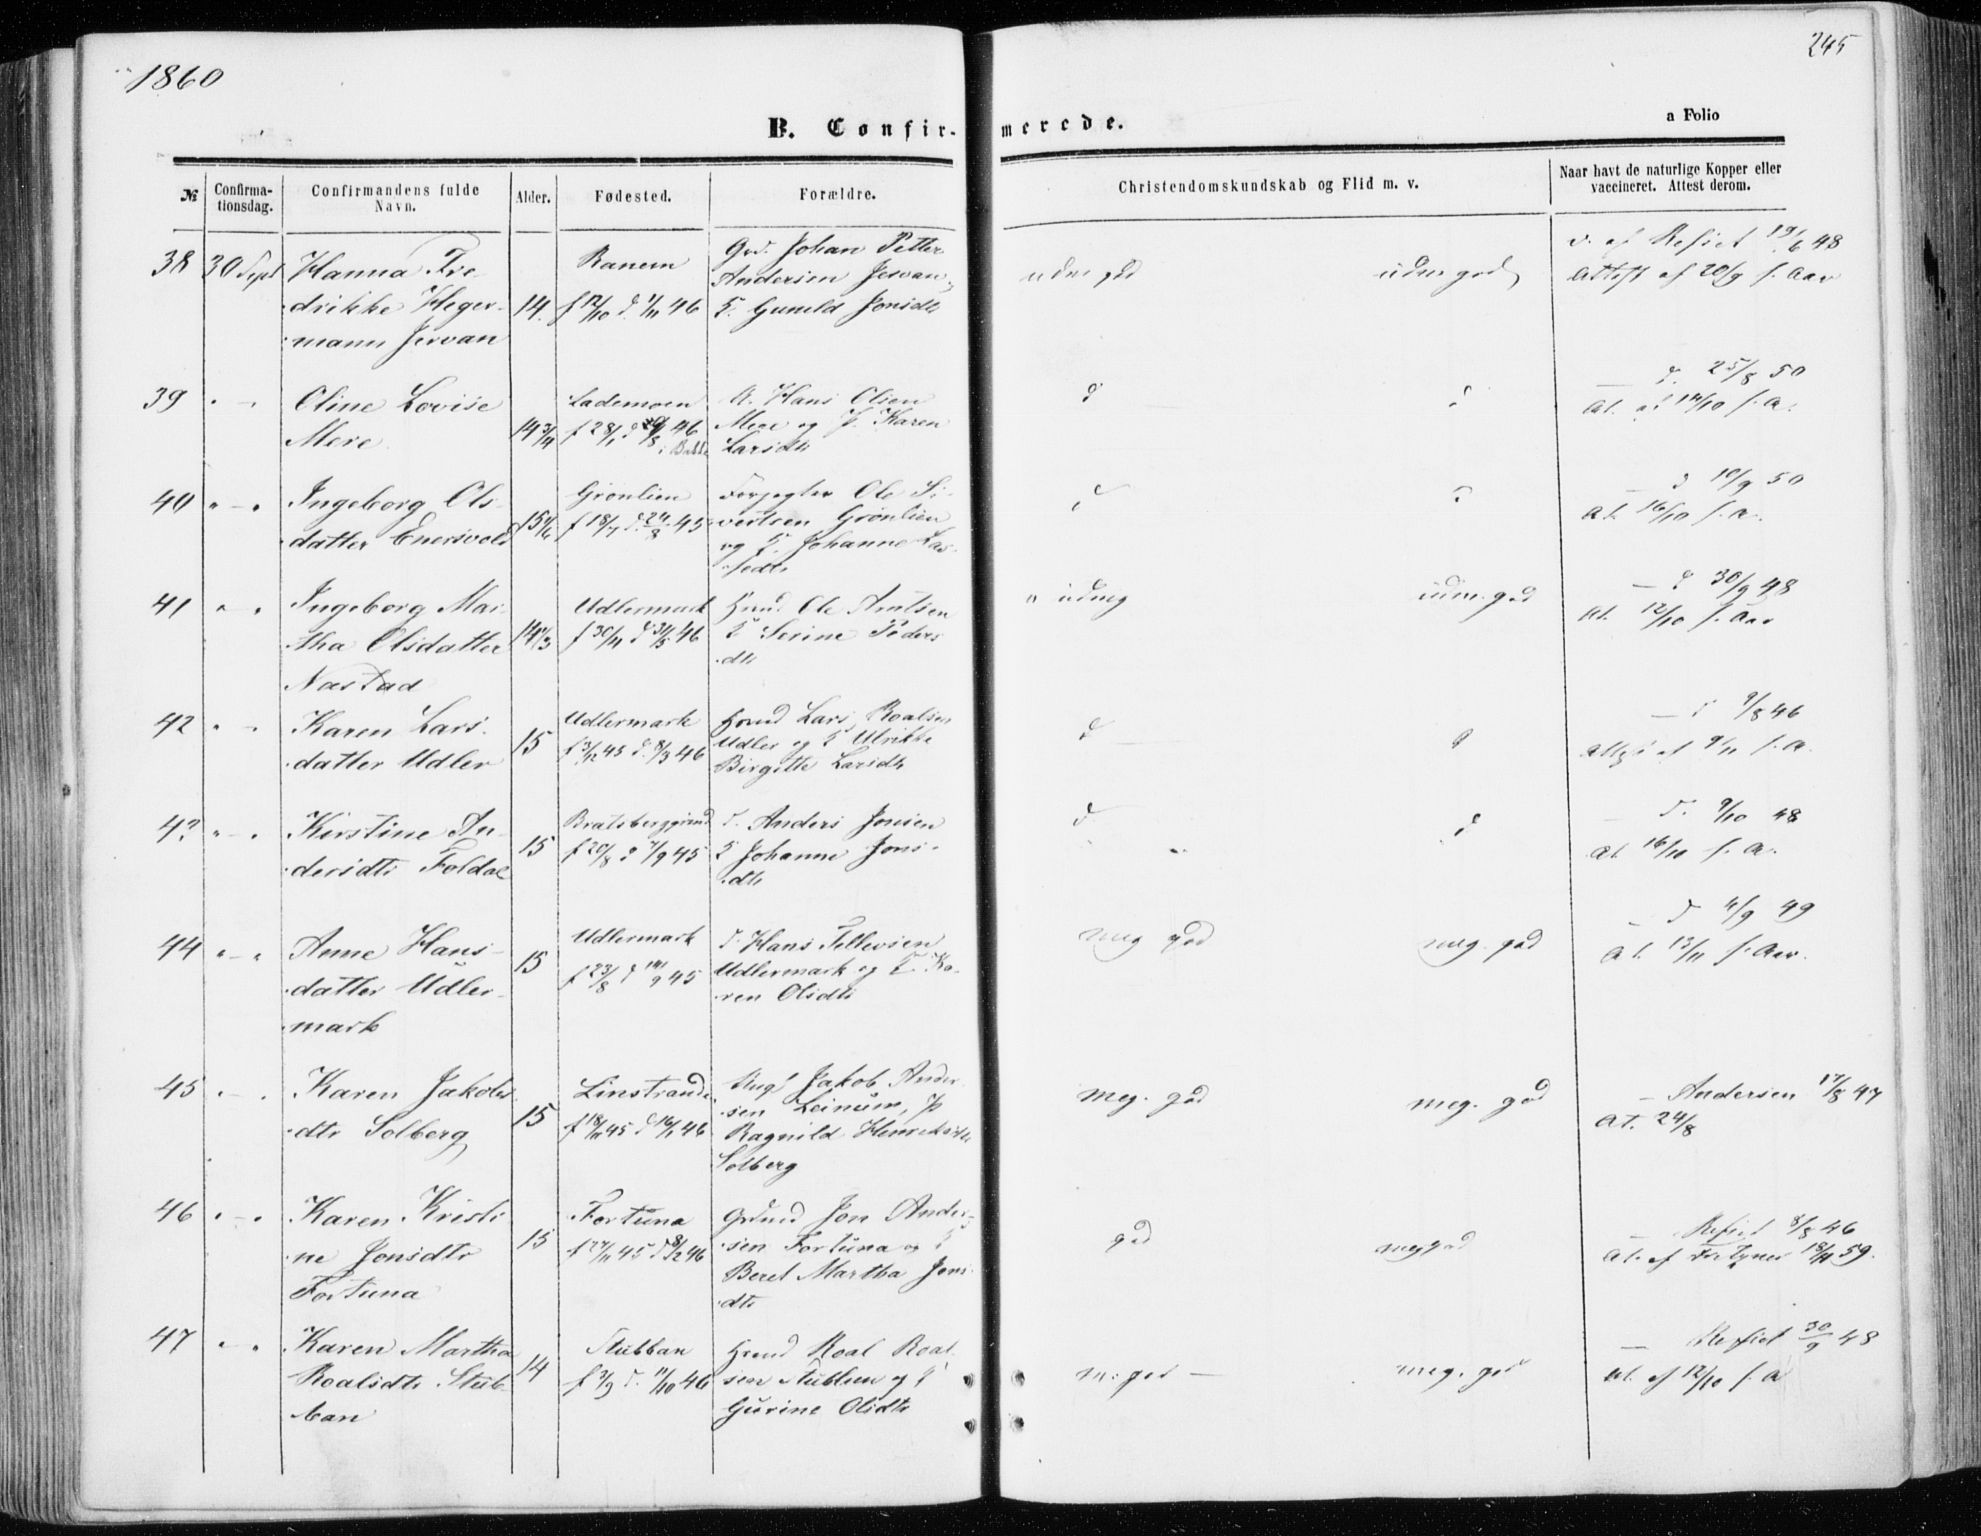 1860
245
B. Confir-
merede.
a Folio
№
Confirma-
tionsdag.
Confirmandens fulde
Navn.
Alder.
Fødested.
Forældre.
Christendomskundskab og Flid m. v.
Naar havt de naturlige Kopper eller
vaccineret. Attest derom.
38 30 Sept Hanna Fre-
drikke Heger-
mann Jervan
14.
Ranem
f 12/10 d. 1/11 46
Johan Petter
Andersen Jervan
Gunild Jonsdtr
udm god
udm god
v. af 19/6 48
Attest af 20/9 s. Aar
39 " - Oline Lovise
Mere
14 3/4
Lademoen
f 28/1
46
Hans Olsen
Mere og P. Karen
Larsdtr
d
d
25/8 50
At. af 14/10 s. A.
40 " - " Ingeborg Ols-
datter Enersvold
15
Grønlien
f 18/7 d. 24/8 45
Ole Si-
vertsen Grønlien
og Johanne Las-
sedtr
d
d
10/9 50
At. 16/10 s. A.
41 " " Ingeborg Mar-
tha Olsdatter
Næstad
Udlermark
f 30/11 d 31/5 46
Ole Arntsen
Serine Peders
dtr
udmg
udm. god
30/9 48
At. 12/10 s. Aar
42 " - Karen Lars-
datter Udler
15
Udlermark
f 3/12 45 d. 8/3 46
Lars Roalsen
Udler og Ulrikke
Birgitte Larsdtr
d
d
9/8 46
s. A.
43 " - " Kirstine An-
dersdtr Foldal
15
Bratsberggrind
f 20/8 d 7/9 45
Anders Jonsen
Johanne Jons-
dtr
d
d
9/10 48
At 16/10 s. A.
44 " - " Anne Hans-
datter Udler-
mark
15
Udlermark
f 23/8 d 14/9 45
Hans Tellevsen
Udlermark og Ka-
ren Olsdtr
meg god
meg. god
4/9 49
At. 13/11 s. Aar.
45 " - " Karen Jakobs
dtr Solberg
15
Linstrand
f 18/11 45 d 16/1 46
Jakob Ander-
sen Leinum, P
Ragnild Henriksdtr
Solberg
meg. god
meg. god
Andersen 17/8 47
At. 24/8
46 " - " Karen Kristi
ne Jonsdtr
Fortuna
15
Fortuna
f 27/11 45 d 8/2 46
Jon Ander-
sen Fortuna og
Beret Martha Jons-
dtr
god
meg god
8/8 46
At. af 18/11 59.
47 " - " Karen Martha
Roalsdtr Stub-
ban
14
Stubban
f 3/9 d. 11/10 46
Roal Roal-
sen Stubban og
Gurine Olsdtr
m. god -
meg. god
30/9 48
At. af 12/10 s. A